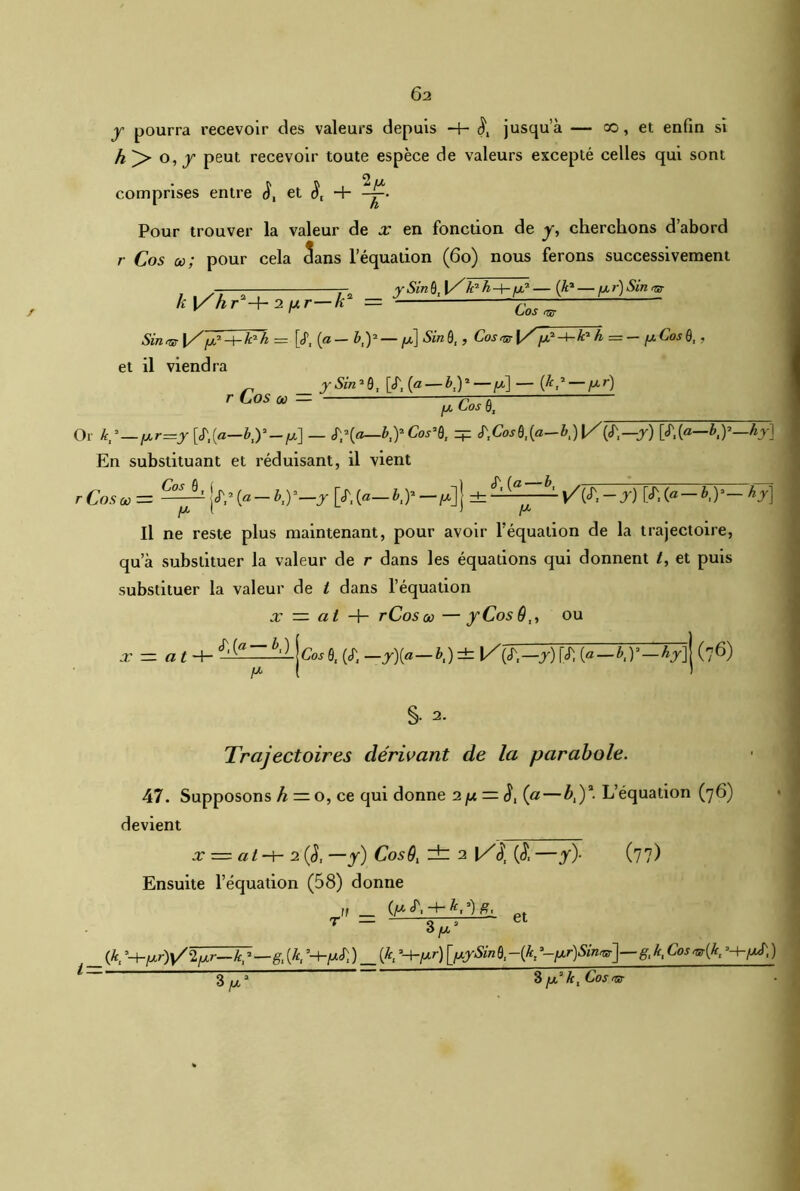 62
y pourra recevoir des valeurs depuis + δ₁ jusqu'à — ∞, et enfin si
h > 0, y peut recevoir toute espèce de valeurs excepté celles qui sont
comprises entre δ₁ et δ₁ + 2μ/h.
Pour trouver la valeur de x en fonction de y, cherchons d'abord
r Cos ω; pour cela dans l'équation (60) nous ferons successivement
k √(hr² + 2μr — k²) = [y Sin θ₁ √(k²h + μ²) — (k² — μr) Sin ϖ] / Cos ϖ
Sin ϖ √(μ² + k²h) = [δ₁ (a — b₁)² — μ] Sin θ₁, Cos ϖ √(μ² + k² h) = — μ Cos θ₁,
et il viendra
r Cos ω = [y Sin² θ₁ [δ₁ (a — b₁)² — μ] — (k₁² — μr)] / μ Cos θ₁
Or k₁² — μr = y [δ₁(a—b₁)² — μ] — δ₁²(a—b₁)² Cos²θ₁ ∓ δ₁Cosθ₁(a—b₁) √(δ₁—y) [δ₁(a—b₁)²—hy]
En substituant et réduisant, il vient
r Cos ω = Cos θ₁/μ {δ₁² (a — b₁)² — y [δ₁ (a—b₁)² — μ]} ± δ₁ (a—b₁/μ √(δ₁ — y) [δ₁ (a — b₁)² — hy]
Il ne reste plus maintenant, pour avoir l'équation de la trajectoire,
qu'à substituer la valeur de r dans les équations qui donnent t, et puis
substituer la valeur de t dans l'équation
x = at + rCos ω — y Cos θ₁, ou
x = at + δ₁(a — b₁)/μ {Cos θ₁ (δ₁ —y)(a—b₁) ± √(δ₁—y) [δ₁ (a—b₁)²—hy]} (76)
§. 2.
Trajectoires dérivant de la parabole.
47. Supposons h = 0, ce qui donne 2μ = δ₁ (a—b₁)². L'équation (76)
devient
x = at + 2 (δ₁ —y) Cosθ₁ ± 2 √δ₁ (δ₁ —y). (77)
Ensuite l'équation (58) donne
τ'' = (μ δ₁ + k₁²) g₁ / 3μ² et
t = [(k₁²+μr)√(2μr—k₁²) — g₁(k₁²+μδ₁)] / 3μ² = [(k₁²+μr) [μySinθ₁—(k₁²—μr)Sinϖ] — g₁k₁Cosϖ(k₁²+μδ₁)] / 3μ²k₁ Cos ϖ